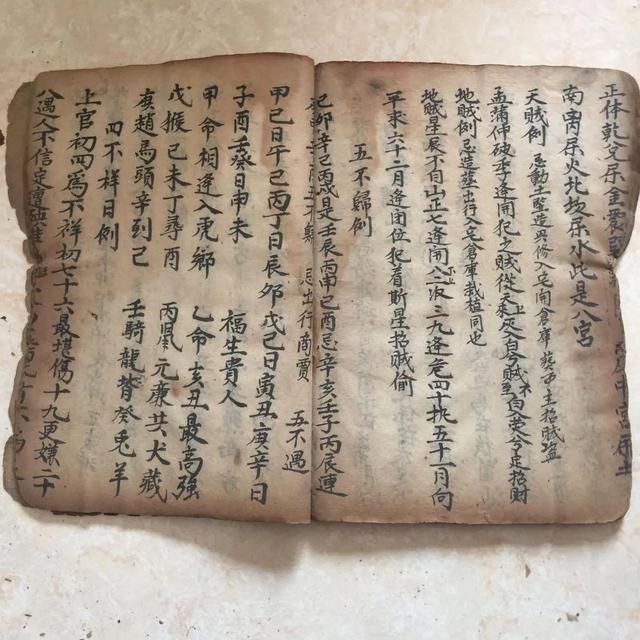 正体乾兌屬金震 中宮屬土
南离屬火北坎屬水此是八宮
天賊例 忌動土竪造興修入宅開倉庫葬 主招賊盜
孟蒲仲破季逢開犯之賊從天上 招財
地賊例 忌造葬出行入宅倉庫栽植同也
地賊星辰不自由正七逢開 次三九逢危四十執五十一月向
平求六十二月逢閉位犯着斯星招賊偷
五不歸例
己卯辛己丙戌是壬辰丙申己酉忌辛亥壬子丙辰連
忌出行商賈 五不遇
甲己日午己丙丁日辰卯戊己日寅丑庚辛日
子酉壬癸日申未 福生貴人
甲命相逢入虎鄉 乙命亥丑最高強
戊猴己未丁尋酉 丙鼠元康共犬藏
庚趕馬頭辛到己 壬騎龍背癸兔羊
四不祥日例
上官初四爲不祥初七十六最堪傷十九更嫌二十
八遇人不信定遭